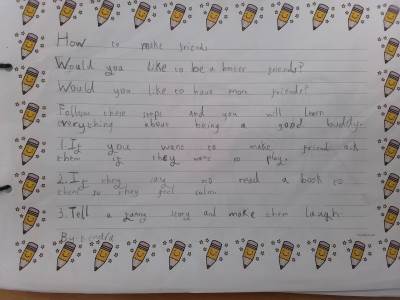 How to make friends
Would you like to be a better friends?
Would you like to have mon friends?
Follow these steps and you will learn
everything about being a good buddy.
1.If you want to make friend ask
them if they want to play.
2.If they say no read a book to
them so they feel calm.
3.Tell a funny story and make them laugh.
By